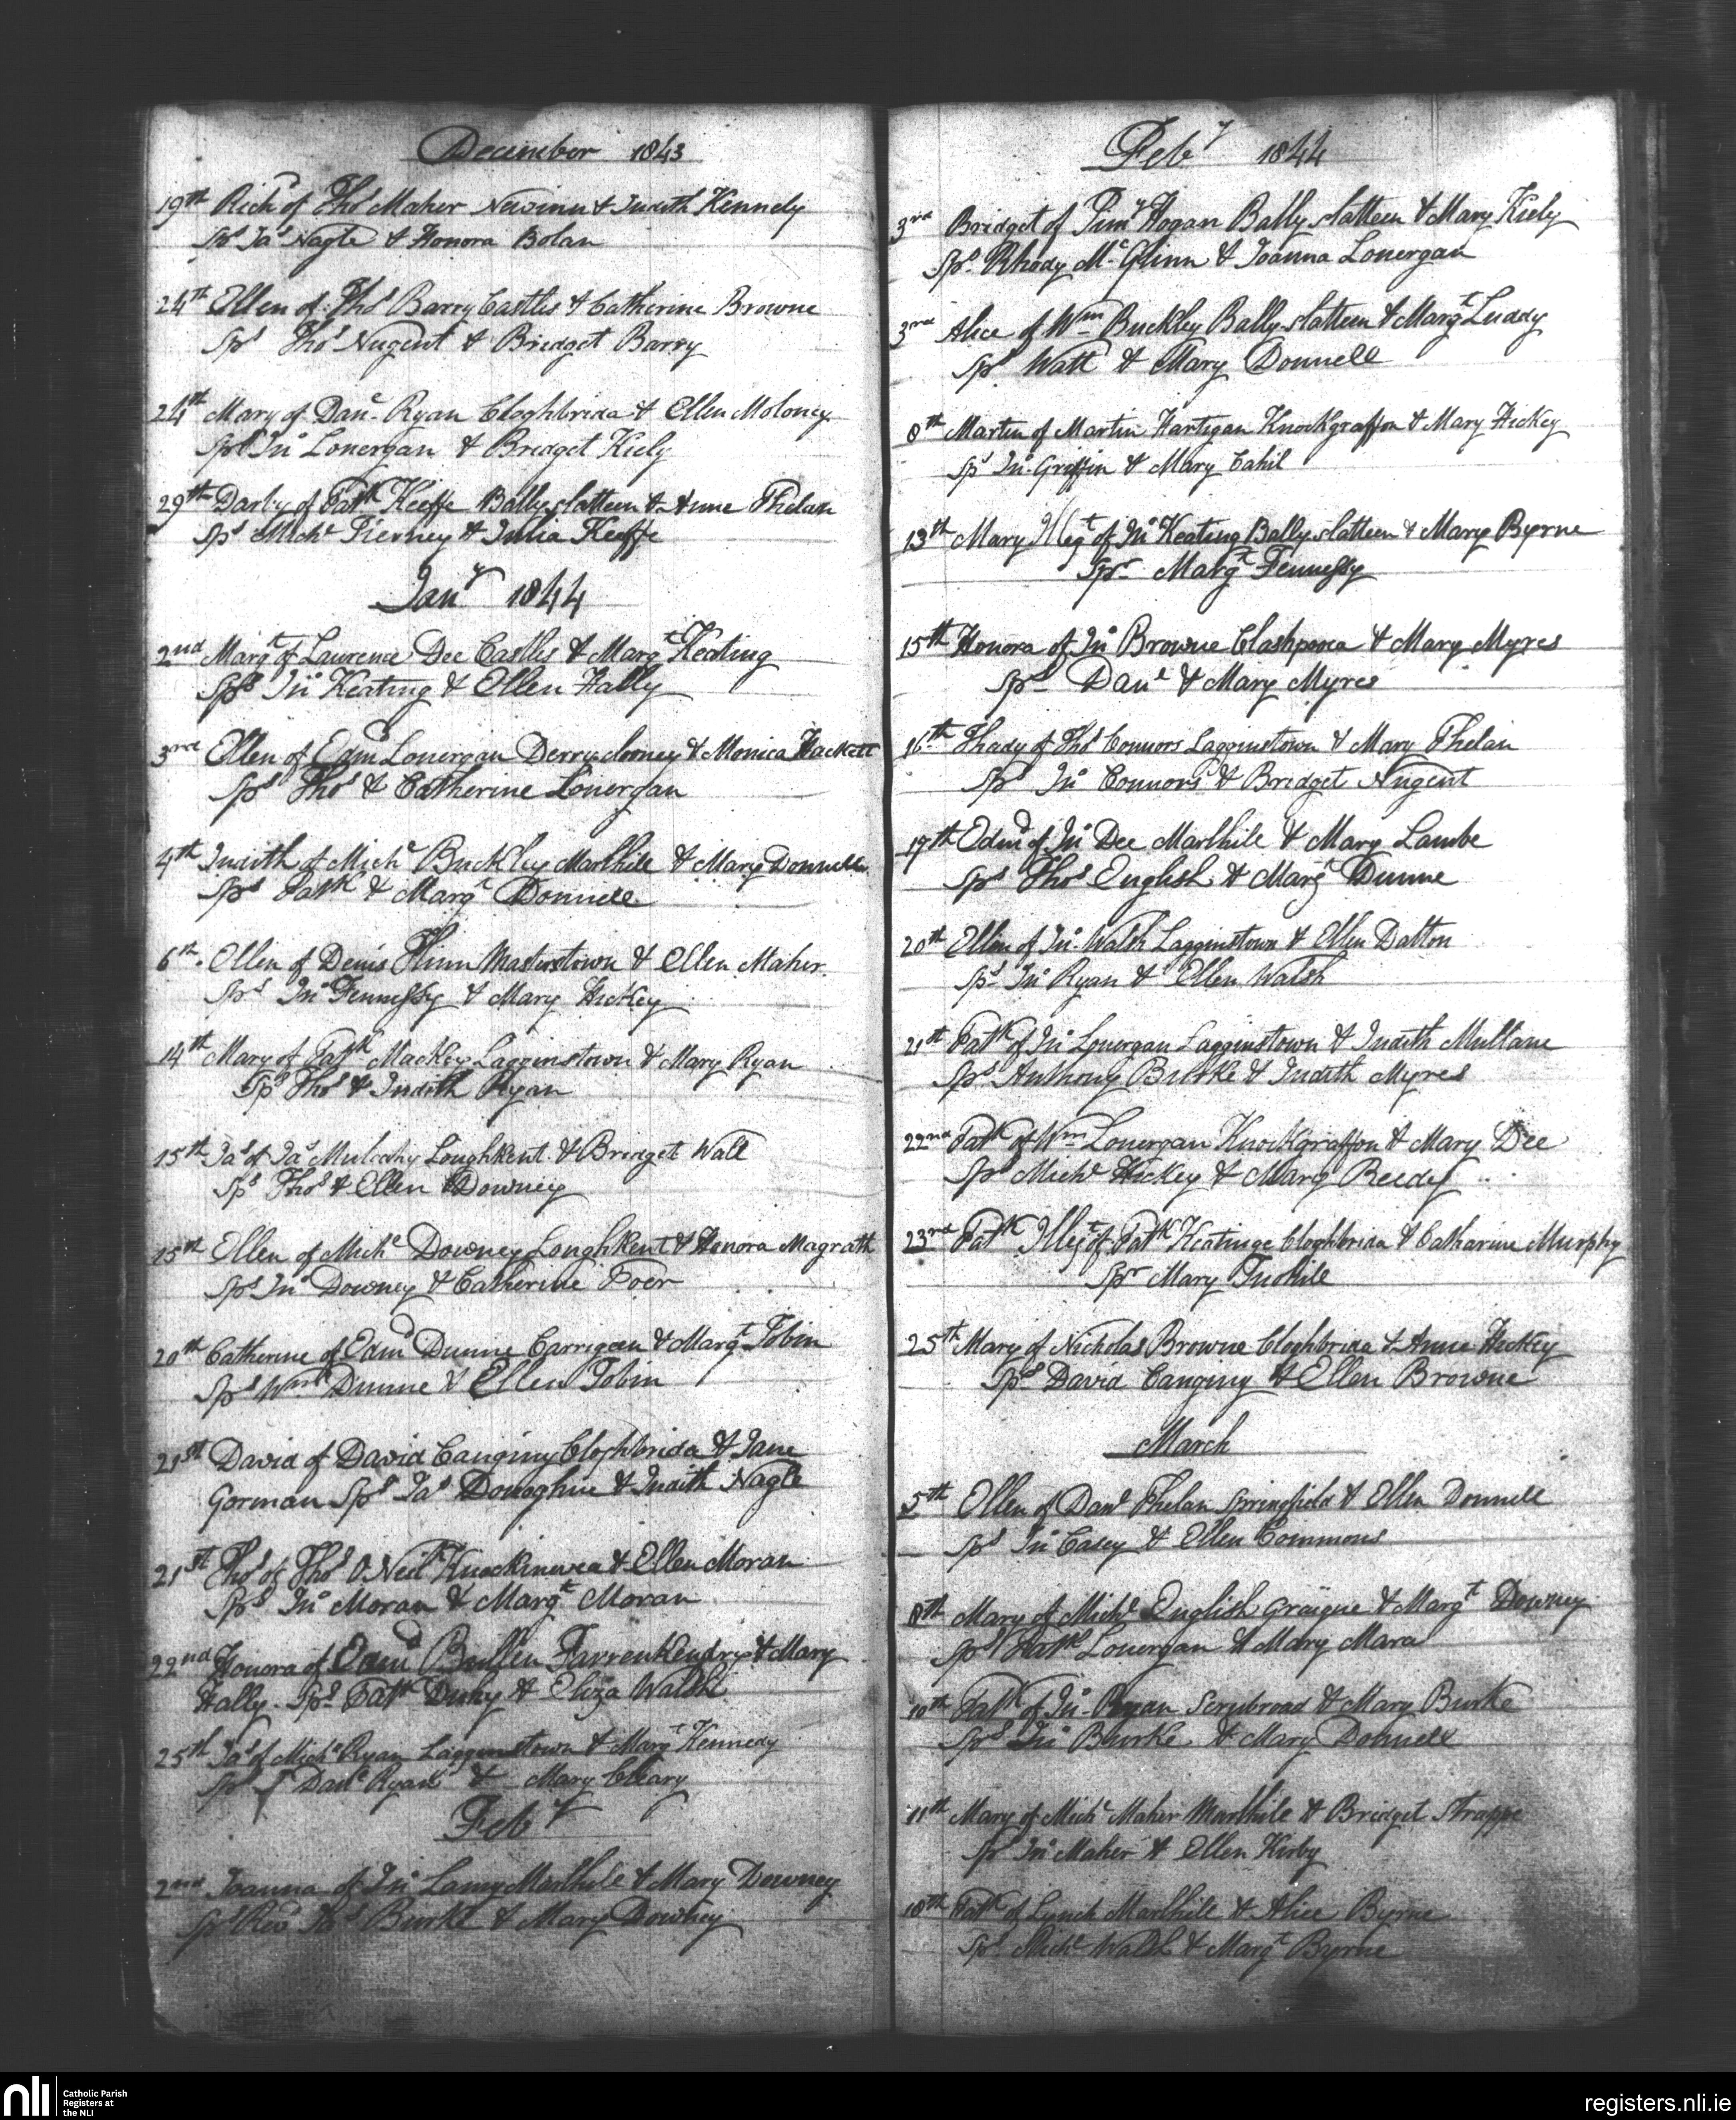 December 1843
19th Richd of Thos Maher Newinn & Judith Kennedy
Sps Jas Nagle & Honora Bolan
24th Ellen of Thos Barry Castles & Catherine Browne
Sps Thos Nugent & Bridget Barry
24th Mary of Danl Ryan Cloghbrida & Ellen Moloney
Sps Jno Lonergan & Bridget Kiely
29th Darby of Patk Keeffe Ballyslatteen & Anne Phelan
Sps Michl Tierney & Julia Keeffe
Jany 1844
2nd Margt of Laurence Dee Castles & Margt Keating
Sps Jno Keating & Ellen Hally
3rd Ellen of Edmd Lonergan Derryclooney & Monica Hackett
Sps Thos & Catherine Lonergan
4th Judith of Michl Buckley Marlhill & Mary Donnell
Sps Patk & Margt Donnell
6th Ellen of Denis Flinn Masterstown & Ellen Maher
Sps Jno Fennessy & Mary Hickey
14th Mary of Patk Mackey Lagginstown & Mary Ryan
Sps Thos & Judith Ryan
15th Jas of Jas Mulcahy Loughkent & Bridget Wall
Sps Thos & Ellen Downey
15th Ellen of Michl Downey Loughkent & Honora Magrath
Sps Jno Downey & Catherine Poer
20th Catherine of Edmd Dunne Carrigeen & Margt Tobin
Sps Wm Dunne & Ellen Tobin
21st David of David Canginy Cloghbrida & Jane
Gorman Sps Jas Donoghue & Judith Nagle
21st Thos of Thos O Neil & Ellen Moran
Sps Jno Moran & Margt Moran
22nd Honora of Edmd Bullen Farrenkendry & Mary
Hally Sps Patk & Eliza Walsh
25th Jas of Michl Ryan Lagginstown & Margt Kennedy
Sps Danl Ryan & Mary Cleary
Feby
2nd Joanna of Jno Lamy Marlhill & Mary Downey
Sps Revd Thos Burke & Mary Downey
Feby 1844
3rd Bridget of Timy Hogan Ballyslatteen & Mary Kiely
Sps Rhody McGlinn & Joanna Lonergan
3rd Alice of Wm Buckley Ballyslatteen & Margt Luddy
Sps Watt & Mary Donnell
8th Martin of Martin Hartigan Knockgraffon & Mary Hickey
Sps Jno Griffin & Mary Cahil
13th Mary Illegt of Jno Keating Ballyslatteen & Mary Byrne
Spr Margt Fennessy
15th Honora of Jno Browne Clashpooca & Mary Myres
Sps Danl & Mary Myres
16th Thady of Thos Connors Lagginstown & Mary Phelan
Sps Jno Connors & Bridget Nugent
17th Edmd of Jno Dee Marlhile & Mary Lambe
Sps Thos English & Margt Dunne
20th Ellen of Jno Walsh Lagginstown & Ellen Dalton
Sps Jno Ryan & Ellen Walsh
21st Patk of Jno Lonergan Lagginstown & Judith Mullane
Sps Anthony Burke & Judith Myres
22nd Patk of Wm Lonergan Knockgraffon & Mary Dee
Sps Michl Hickey & Margt Reedy
23rd Patk Illegt of Patk Keatinge Cloghbrida & Catharine Murphy
Spr Mary Tuohile
25th Mary of Nicholas Browne Cloghbrida & Anne Hickey
Sps David Canginy & Ellen Browne
March
5th Ellen of Danl Phelan Springfield & Ellen Donnell
Sps Jno Casey & Ellen Commons
8th Mary of Michl English Graigue & Margt Downey
Sps Patk Lonergan & Mary Mara
10th Patk of Jno Ryan Scrubroad & Mary Burke
Sps Jno Burke & Mary Donnell
11th Mary of Michl Maher Marlhile & Bridget Strappe
Sps Jno Maher & Ellen Kirby
18th Patk of Lynch Marlhile & Alice Byrne
Sps Michl Walsh & Margt Byrne
nli
Catholic Parish
Registers at
the NLI
registers.nli.ie